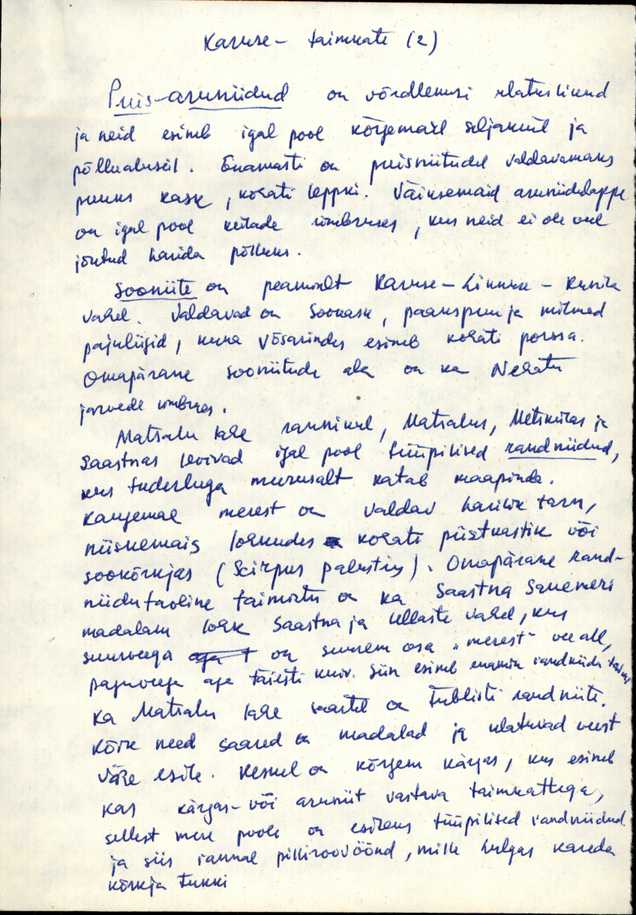 Karuse – taimkate (2)
Puis-aruniidud on võrdlemisi ulatuslikud
ja neid esineb igal pool kõrgemail seljakuil ja
põllualuseil. Enamasti on puisniitudel valdavamaks
puuks kask, kohati leppki. Väiksemaid aruniidulappe
on igal pool külade ümbruses, kus neid ei ole veel
jõutud harida põlluks.
Sooniite on peamiselt Karuse – Linnuse – Kunila
vahel. Valdavad on sookask, paakspuu ja mitmed
pajuliigid, kuna võsarindes esineb kohati porssa.
Omapärane sooniitude ala on ka Nehatu
järvede ümbrus.
Matsalu lahe rannikul, Matsalus, Metskülas ja
Saastnas leiduvad igal pool tüüpilised randniidud,
kus tuderluga murusalt katab maapinda.
Kaugemal merest on valdav harilik tarn,
niiskemais lohkudes kohati püstkastik või
sookõrkjas (Scirpus palustris). Omapärane rand-
niidutaoline taimestu on ka Saastna Sauemeri
madalam lohk Saastna ja Illaste vahel, kus
suurveega on suurem osa "merest" vee all,
paguvee aja täiesti kuiv. Siin esineb enamik randniidu taimi
Ka Matsalu lahe saartel on tublisti randniite.
Kõik need saared on madalad ja ulatuvad veest
vähe esile. Keskel on kõrgem kärgas, kus esineb
kas kärgas- või aruniit vastava taimkattega,
sellest mere poole on esiteks tüüpilised randniidud
ja siis rannal pilliroovöönd, mille hulgas kareda
kõrkja tukki